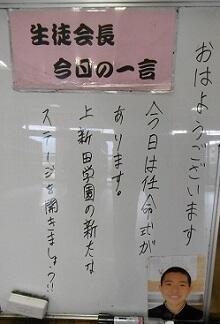 生徒会長
今日の一言
おはようございます
今日は任命式が
あります。
上新田学園の新たな
ステージを開きましょう!!